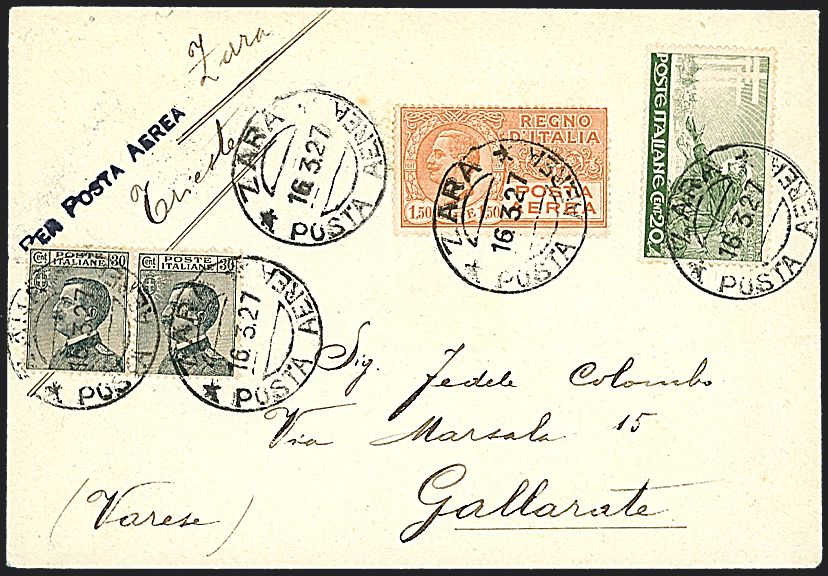 Zara
PER POSTA AEREA
Trieste
ZARA
16.3.27
POSTA AEREA
REGNO
D'ITALIA
POSTA
AEREA
1.50 1.50
ZARA
16.3.27
POSTA AEREA
POSTE ITALIANE Cent 20
ZARA
16.3.27
POSTA AEREA
Cent POSTE ITALIANE 30
Cent POSTE ITALIANE 30
16.3.27
POSTA AEREA
ZARA
16.3.27
POSTA AEREA
Sig. Fedele Colombo
Via Marsala 15
Gallarate
(Varese)